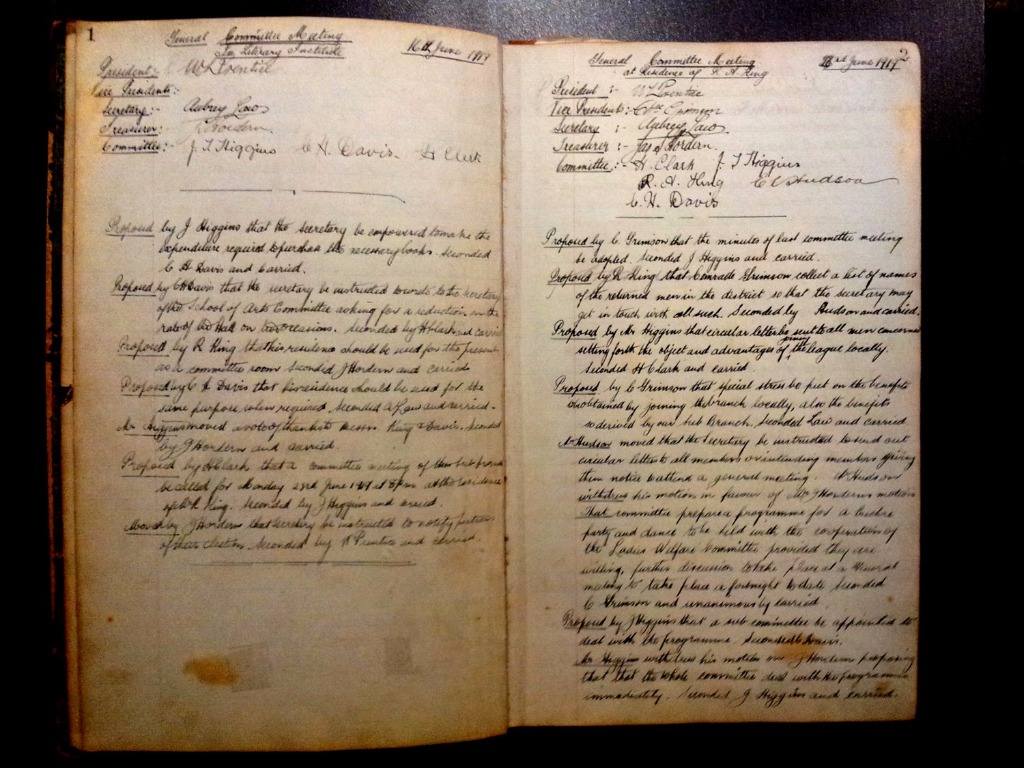 1
General Committee Meeting
In Literary Institute
16th June 1919
President:-
Vice Presidents:-
Secretary:- Aubrey Laws
Treasurer:- J Hordern
Committee:- J. T Higgins C H. Davis. H Clark
Proposed by J Higgins that the secretary be empowered to make the
expenditure required to purchase the necessary books. Seconded
C H Davis and Carried.
Proposed by C H Davis that the secretary be instructed to write to the secretary
of the School of Arts Committee asking for a reduction in the
rate of the Hall on occasions. Seconded by H Clark and carried
Proposed by R King that his residence should be used for the present
as a committee room Seconded J Hordern and carried
Proposed by C H Davis that his residence should be used for the
same purpose when required. Seconded A Laws and carried.
Mr Higgins moved a vote of thanks to Messrs King & Davis. Seconded
by J Hordern and carried.
Proposed by H Clark that a committee meeting of this
be called for Monday 23rd June 1919 at 8pm at the residence
of Mr R. King. Seconded by J Higgins and carried.
Moved by J Hordern that Secretary be instructed to notify
of their election. Seconded by and carried.
2
General Committee Meeting
at Residence of R A King
23rd June 1919
President :-
Vice Presidents:-
Secretary :- Aubrey Laws.
Treasurer :- Hordern.
Committee:- H. Clark J. T Higgins
R. A. King Hudson
C. H. Davis
Proposed by C. Grimson that the minutes of last committee meeting
be adopted. Seconded J Higgins and carried.
Proposed by R King that Comrade Grimson collect a list of names
of the returned men in the district so that the secretary may
get in touch with all such. Seconded by Hudson and carried.
Proposed by Mr Higgins that circular letter be sent to all men concerned
setting forth the object and advantages of joining the league locally.
Seconded H Clark and carried
Proposed by C Grimson that special stress be put on the benefits
obtained by joining the branch locally, also the benefits
so derived by our Sub Branch. Seconded Laws and carried
Mr Hudson moved that the Secretary be instructed to send out
circular letter to all members or intending members giving
them notice to attend a general meeting. Mr Hudson
withdrew his motion in favour of Mr J Horderns motion
that committee prepare a programme for a Euchre
party and dance to be held with the cooperation of
the Ladies Welfare Committee provided they are
willing, further discussion to take place at a General
meeting to take place a fortnight to date Seconded
C Grimson and unanimously carried.
Proposed by J Higgins that a sub committee be appointed to
deal with the programme. Seconded Davis.
Mr Higgins withdrew his motion on J Hordern proposing
that that the whole committee deal with the programme
immediately. Seconded J Higgins and carried.